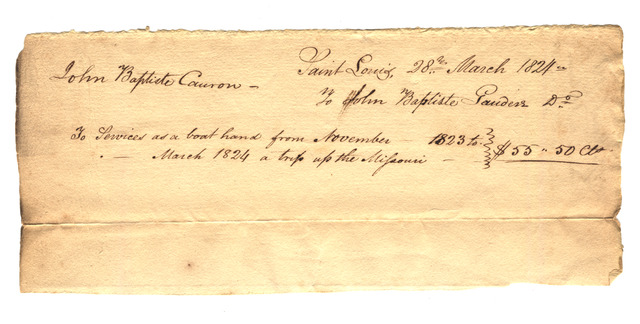 Saint Louis, 28th March 1824
John Baptiste Cauron
To John Baptiste Dr
To Services as a boat hand from November 1823 to
March 1824 a trip up the Missouri $55 " 50 Cts